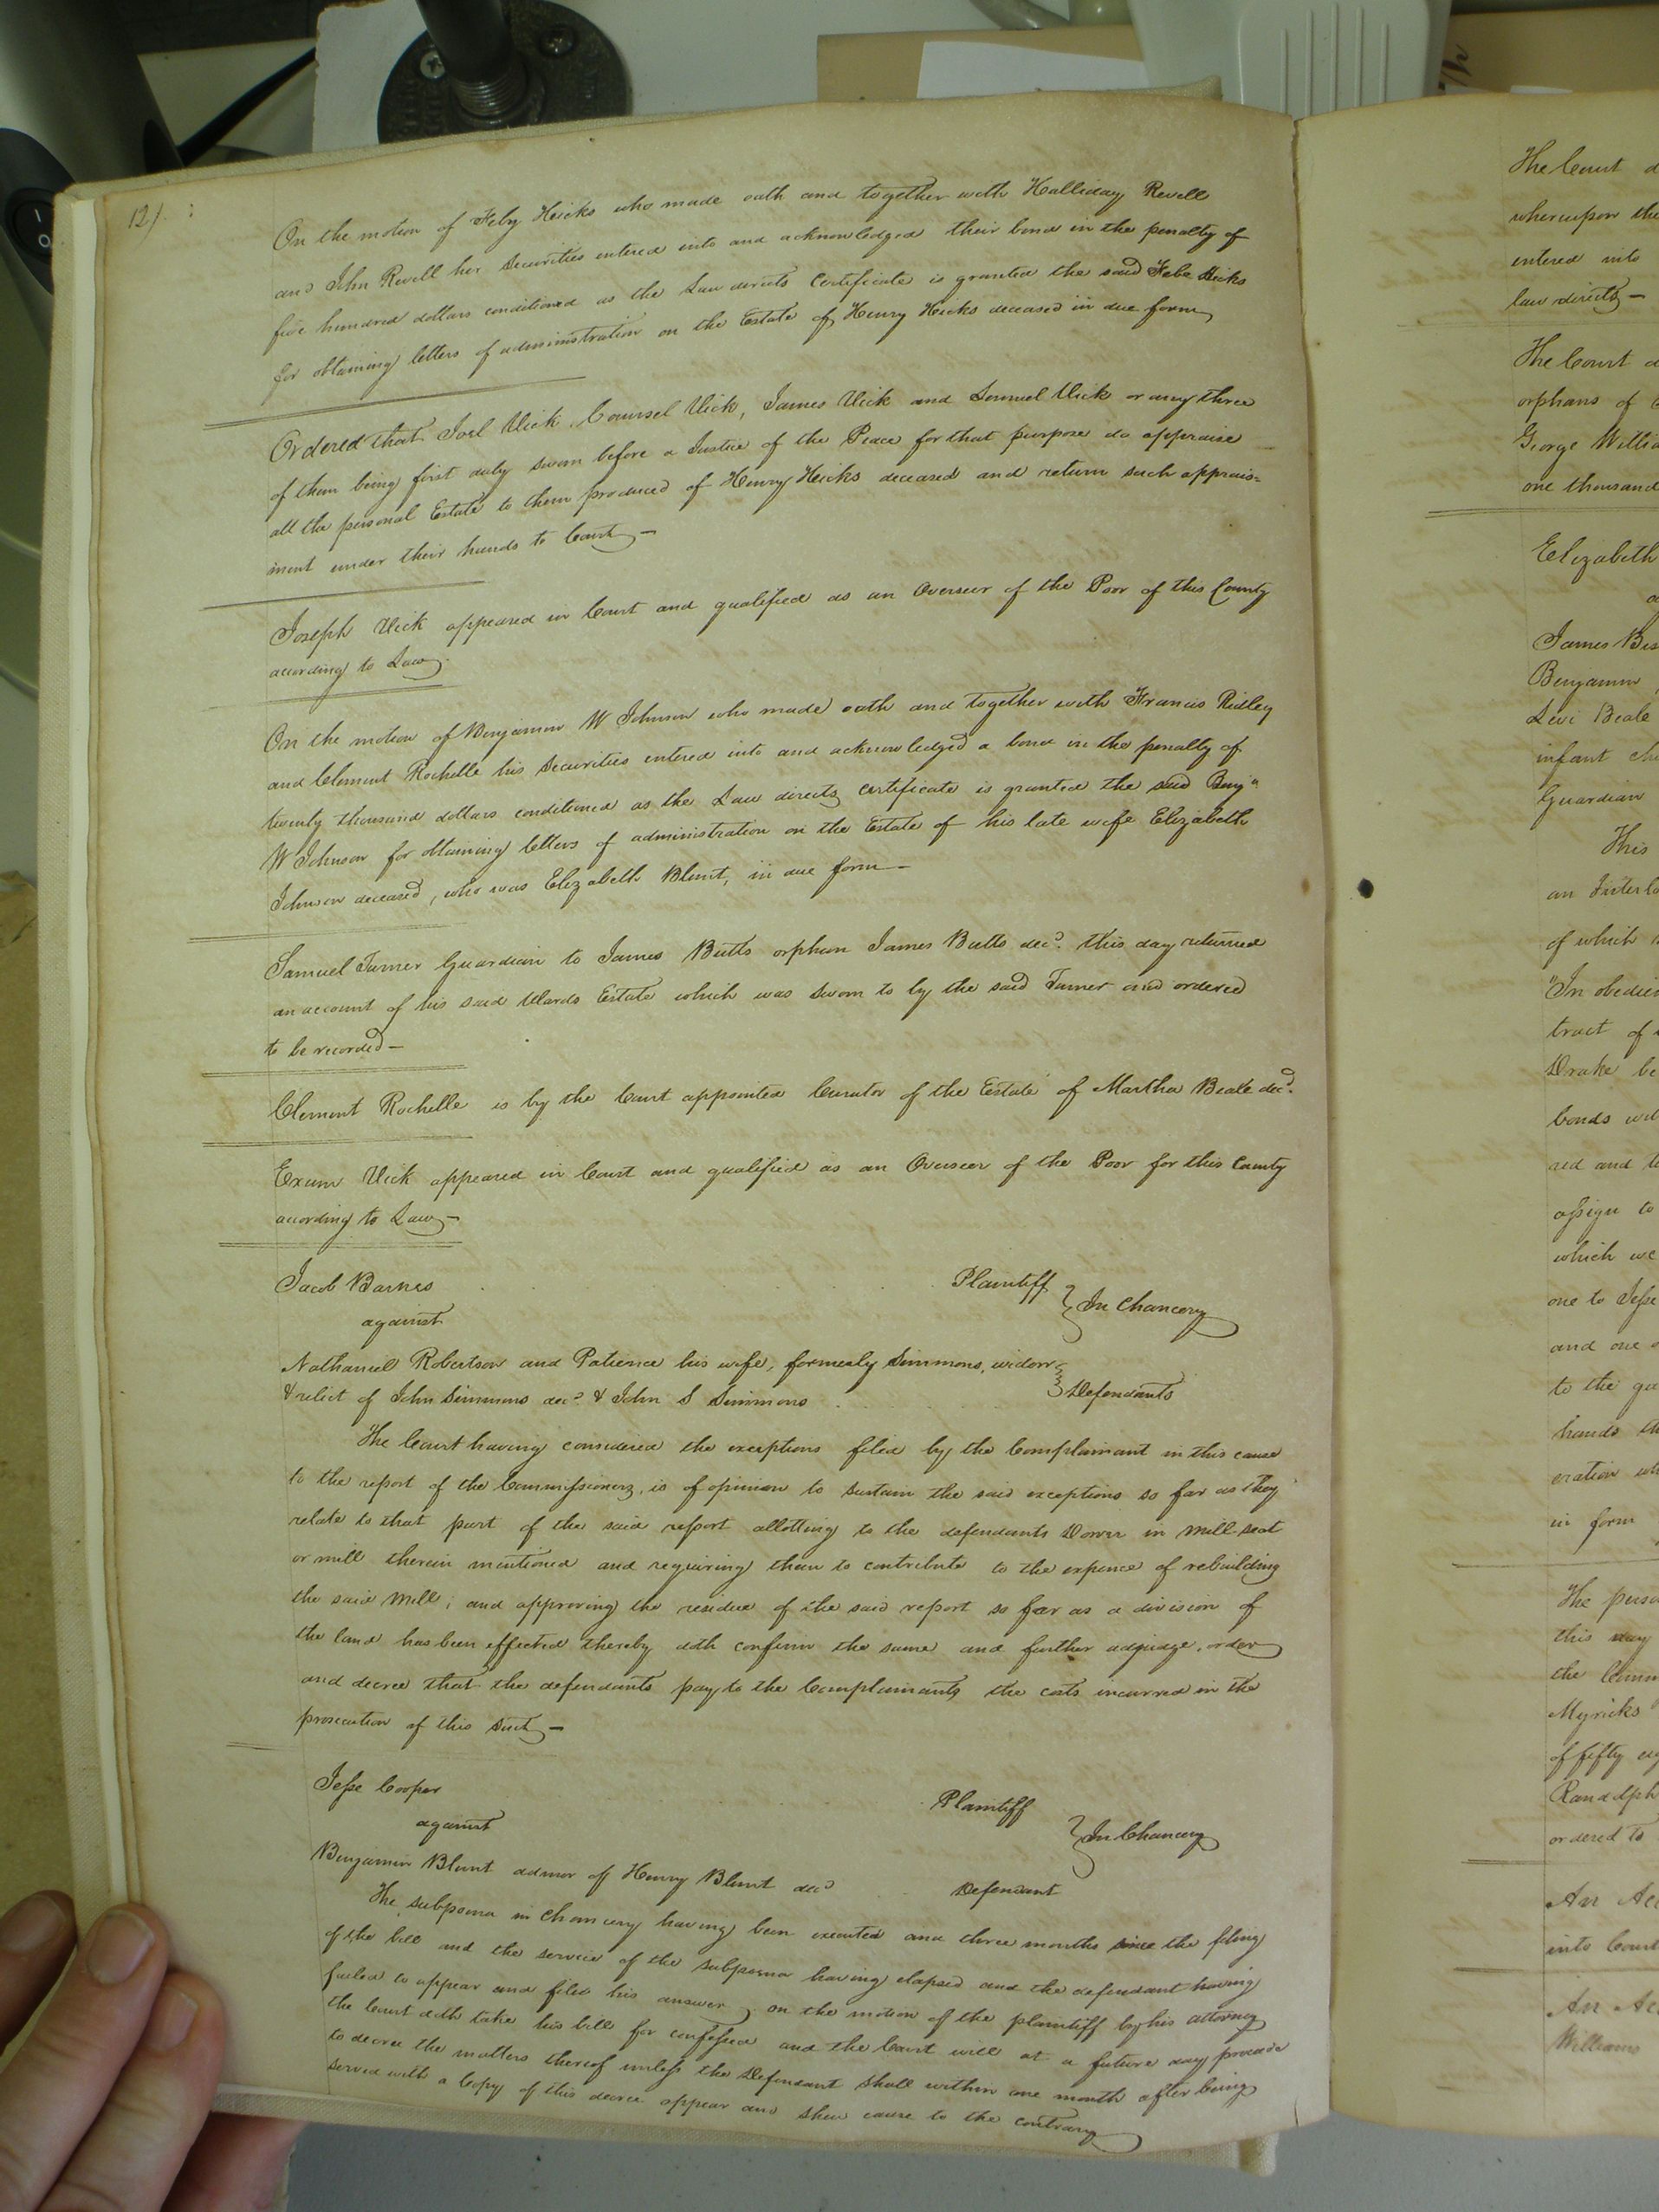 121
On the motion of Feby Hicks who made oath and together with Halliday Revell
and John Revell her Securities entered into and acknowledged their bond in the penalty of
five hundred dollars conditioned as the Law directs Certificate is granted the said Febe Hicks
for obtaining letters of administration on the Estate of Henry Hicks deceased in due form
Ordered that Joel Vick, Counsel Vick, James Vick and Lemuel Vick or any three
of them being first duly sworn before a Justice of the Peace for that purpose do appraise
all the personal Estate to them produced of Henry Hicks deceased and return such apprais=
ment under their hands to Court—
Joseph Vick appeared in Court and qualified as an Overseer of the Poor of this County
according to Law
On the motion of Benjamin W Johnson who made oath and together with Francis Ridley
and Clement Rochelle his Securities entered into and acknowledged a bond in the penalty of
twenty thousand dollars conditioned as the Law directs certificate is granted the said Benjn
W Johnson for obtaining letters of administration on the Estate of his late wife Elizabeth
Johnson deceased, who was Elizabeth Blunt, in due form—
Samuel Turner Guardian to James Butts orphan James Butts decd. this day returned
an account of his said Wards Estate which was sworn to by the said Turner and ordered
to be recorded—
Clement Rochelle is by the Court appointed Curator of the Estate of Martha Beale decd.
Exum Vick appeared in Court and qualified as an Overseer of the Poor for this County
acording to Law—
Jacob Barnes Plaintiff
against } In Chancery
Nathaniel Robertson and Patience his wife, formerly Simmons, widow
& relict of John Simmons decd & John S Simmons } Defendants
The Court having considered the exceptions filed by the Complainant in this cause
to the report of the Commissioners, is of opinion to sustain the said exceptions so far as they
relate to that part of the said report allotting to the defendants Dower in mill seat
or mill therein mentioned and requiring them to contribute to the expence of rebuilding
the said Mill; and approving the residue of the said report so far as a division of
the land has been effected thereby doth confirm the same and further adjudge, order
and decree that the defendants pay to the Complainants the costs incurred in the
prosecution of this Suit—
Jesse Cooper Plaintiff
against } In Chancery
Benjamin Blunt admor of Henry Blunt decd Defendant
The subpoena in Chancery having been executed and three months since the filing
of the bill and the service of the subpoena having elapsed and the defendant having
failed to appear and filed his answer, on the motion of the plaintiff by his attorney
the Court doth take his bill for confessed and the Court will at a future day proceed
to decree the matters thereof unless the Defendant shall within one month after being
served with a Copy of this decree appear and shew cause to the contrary
The Court
whereupon the
entered into
law directs—
The Court
orphans of
George Willia
one thousand
Elizabeth
James
Benjamin
Levi Beale
infant
Guardian
This
an Interlo
of which
"In obedien
tract of
Drake be
bonds
red and
assign to
which we
one to Jesse
and one
to the
hands
eration
in form
The perso
this day
the
Myricks
of fifty
Randolph
ordered to
An Acc
into Court
An Acc
Williams